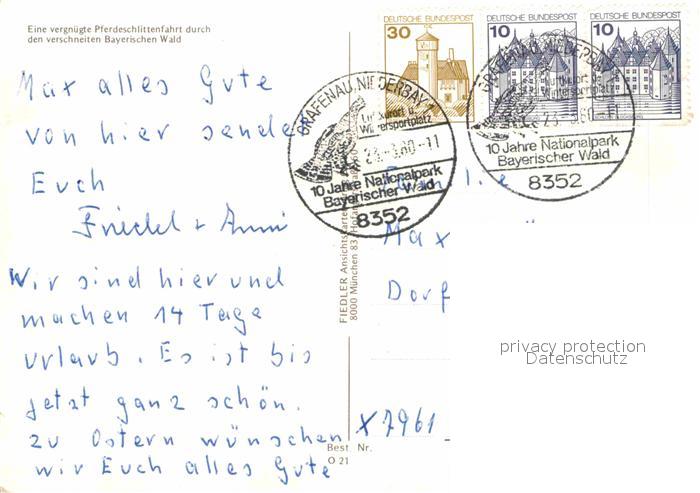 Eine vergnügte Pferdeschlittenfahrt durch
den verschneiten Bayerischen Wald
Max alles Gute
von hier senden
Euch
Friedel + Anni
Wir sind hier und
machen 14 Tage
Urlaub. Es ist bis
jetzt ganz schön.
zu Ostern wünschen
wir Euch alles Gute
FIEDLER Ansichtskarten
8000 München 83
Best Nr.
O 21
DEUTSCHE BUNDESPOST
30
DEUTSCHE BUNDESPOST
10
DEUTSCHE BUNDESPOST
10
GRAFENAU, NIEDERBAY 1
Luftkurort u.
Wintersportplatz
10 Jahre Nationalpark
Bayerischer Wald
8352
GRAFENAU, NIEDERBAY
Luftkurort u.
Wintersportplatz
10 Jahre Nationalpark
Bayerischer Wald
8352
Familie
Max
Dorf
X 7961
privacy protection
Datenschutz